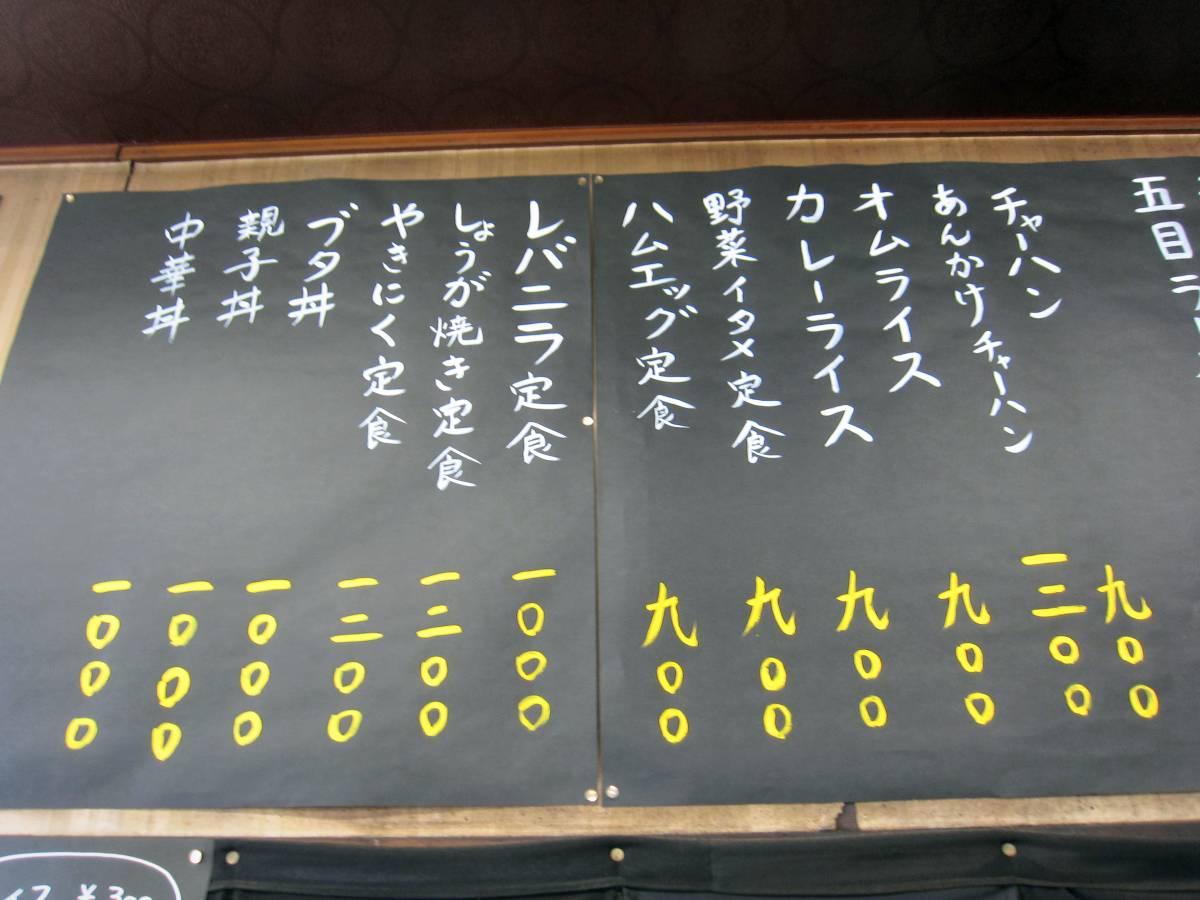 五目
チャーハン 九〇〇
あんかけチャーハン 一二〇〇
オムライス 九〇〇
カレーライス 九〇〇
野菜イタメ定食 九〇〇
ハムエッグ定食 九〇〇
レバニラ定食 一〇〇〇
しょうが焼き定食 一二〇〇
やきにく定食 一二〇〇
ブタ丼 一〇〇〇
親子丼 一〇〇〇
中華丼 一〇〇〇
¥300